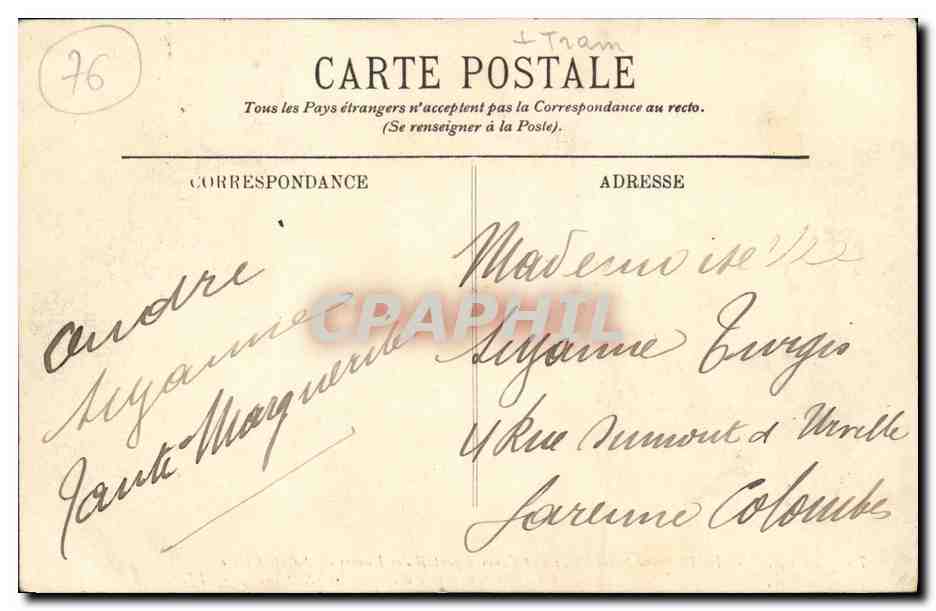 76
+ Tram
CARTE POSTALE
Tous les Pays étrangers n'acceptent pas la Correspondance au recto.
(Se renseigner à la Poste).
CORRESPONDANCE
André
Suzanne
Tante Marguerite
ADRESSE
Mademoiselle
Suzanne Turgis
4 Rue Dumont d Urville
Garenne Colombes
CPAPHIL